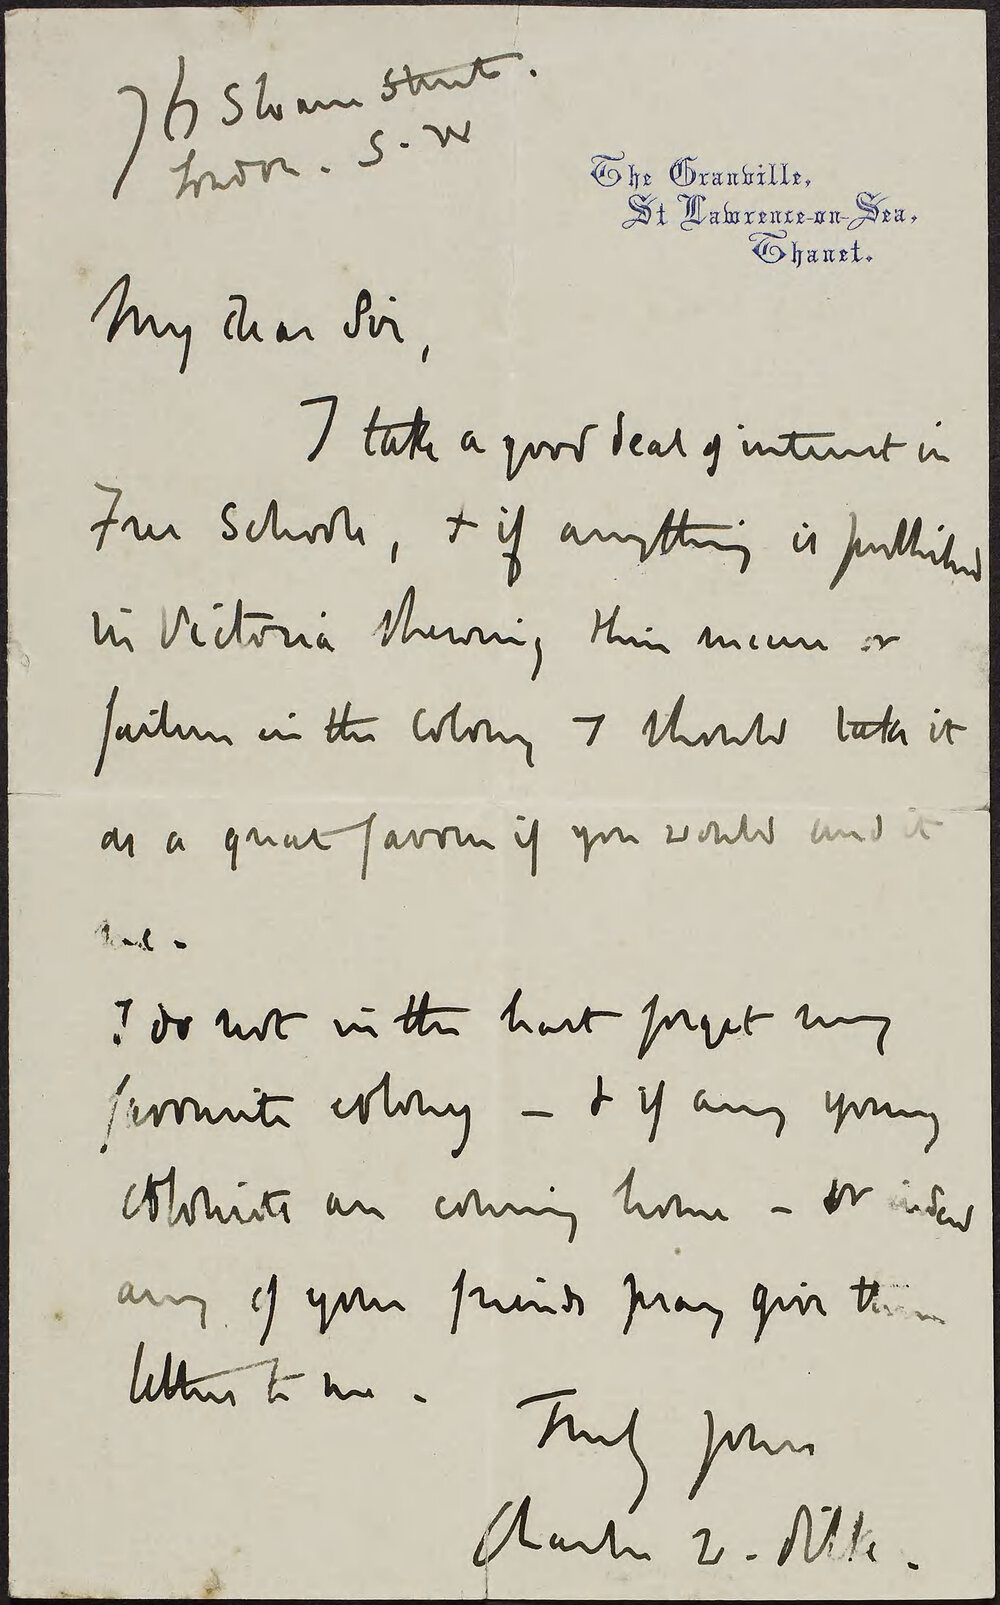 76 Sloane Street.
London. S. W
The Granville,
St Lawrence-on-Sea,
Thanet.
My dear Sir,
I take a good deal of interest in
Free Schools, + if anything is published
in Victoria shewing their success or
failure in the Colony I should take it
as a great favour if you would send it
me.
I do not in the least forget my
favourite colony – & if any young
Colonists are coming home – or indeed
any of your friends pray give them
letters to me.
Truly yours
Charles W. Dilke.